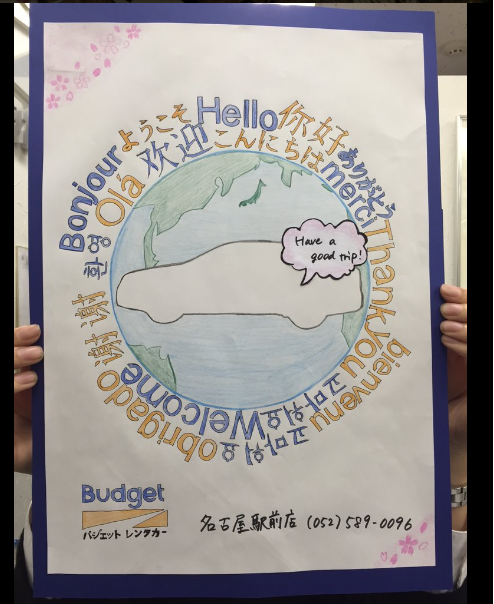 Bonjour
ようこそ
Hello
你好
ありがとう
환영
Olá
欢迎
こんにちは
merci
Thank you
bienvenu
고마워요
Welcome
고마워요
obrigado
谢谢
Have a
good trip!
Budget
バジェット レンタカー
名古屋駅前店 (052) 589-0096